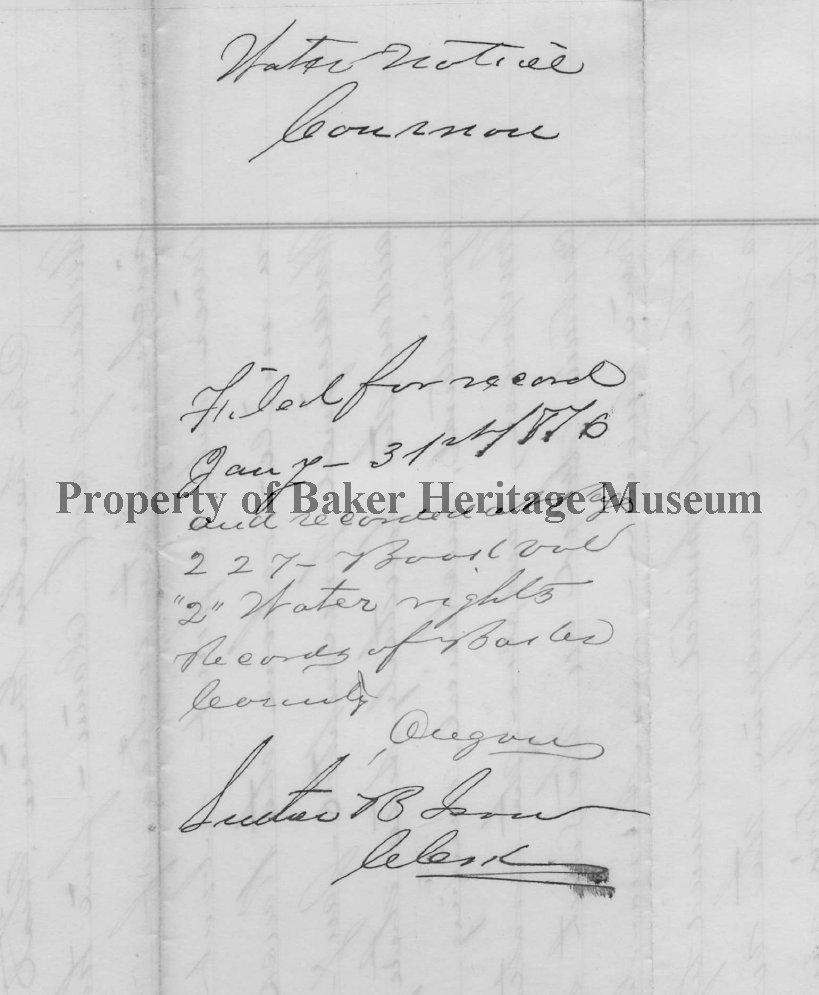 Water Notice
Cournou
Filed for record
Jany - 31st/1876
Property of Baker Heritage Museum
and recorded on Page
227 - Book vol
"2" Water rights
Records of Baker
County
Oregon
B Ison
Clerk